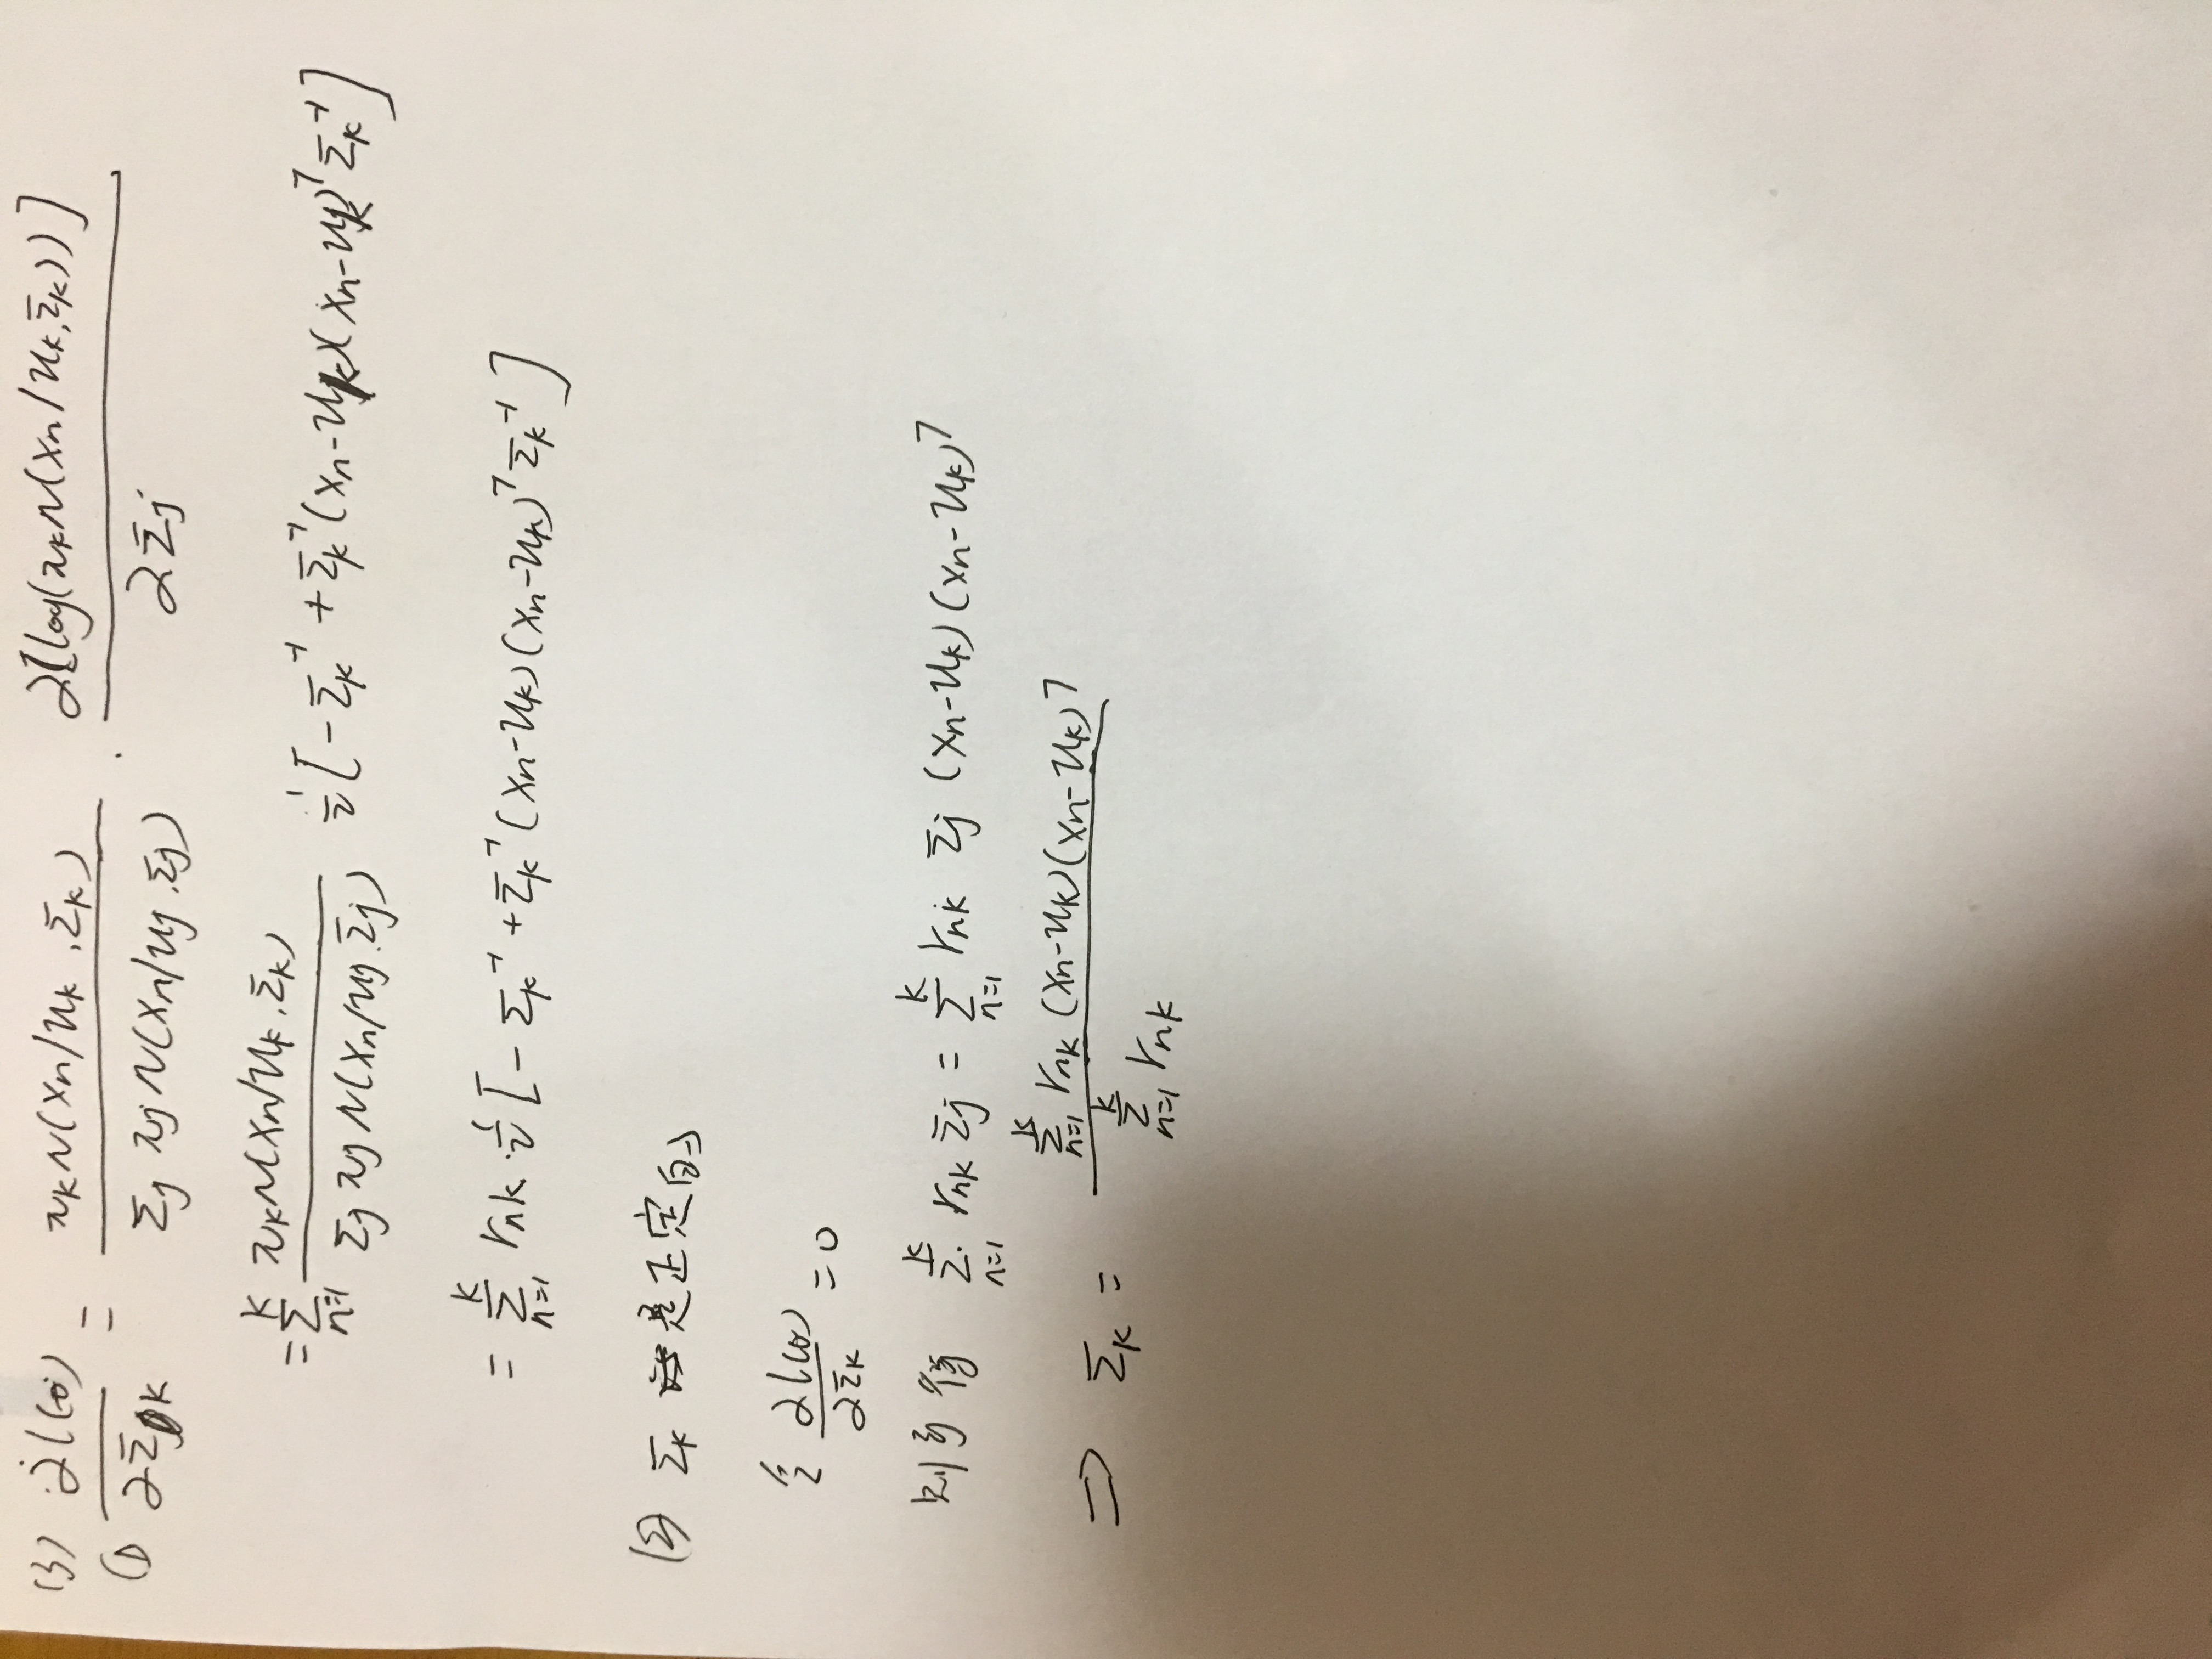 (3) ∂l(θ) / ∂Σk = πk N(xn/uk, Σk) / Σj πj N(xn/uj, Σj) · ∂[log(πk N(xn/uk, Σk))] / ∂Σj
(1)
= Σ_{n=1}^{K} πk N(xn/uk, Σk) / Σj πj N(xn/uj, Σj) 1/2 [-Σk^{-1} + Σk^{-1}(xn-uk)(xn-uk)^T Σk^{-1}]
= Σ_{n=1}^{K} rnk · 1/2 [-Σk^{-1} + Σk^{-1}(xn-uk)(xn-uk)^T Σk^{-1}]
(2) Σk 是正定的
令 ∂l(θ) / ∂Σk = 0
则可得 Σ_{n=1}^{K} rnk Σj = Σ_{n=1}^{K} rnk Σj (xn-uk)(xn-uk)^T
⇒ Σk = Σ_{n=1}^{K} rnk (xn-uk)(xn-uk)^T / Σ_{n=1}^{K} rnk